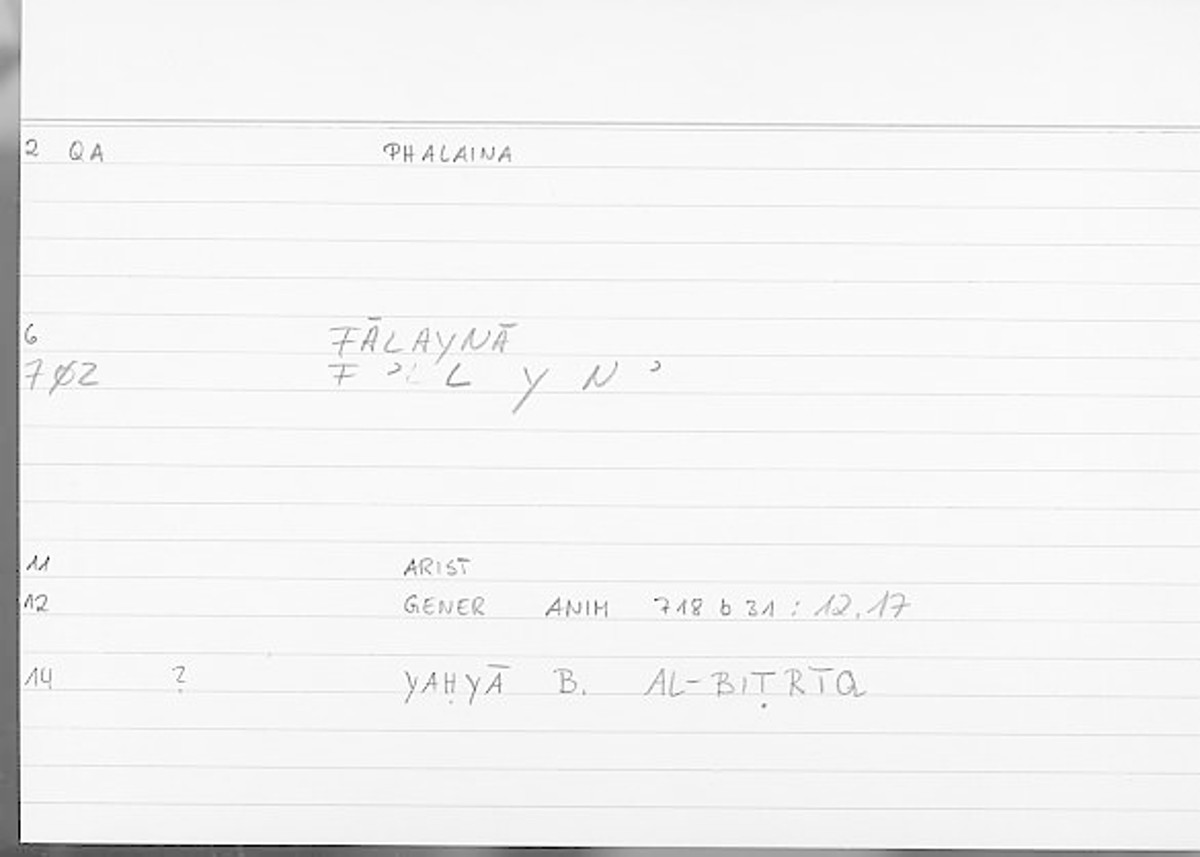 2 QA PHALAINA
6 FĀLAYNĀ
7Ø2 F ʾ L Y N ʾ
11 ARIST
12 GENER ANIM 718 b 31 : 12,17
14 ? YAḤYĀ B. AL-BIṬRĪQ